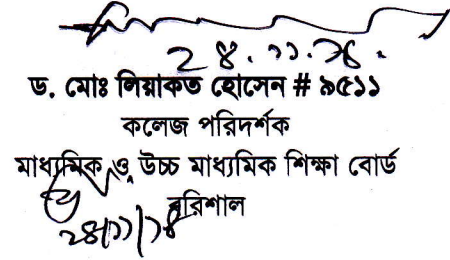 ২৪.১১.১৮.
ড. মোঃ লিয়াকত হোসেন # ৯৫১১
কলেজ পরিদর্শক
মাধ্যমিক ও উচ্চ মাধ্যমিক শিক্ষা বোর্ড
বরিশাল